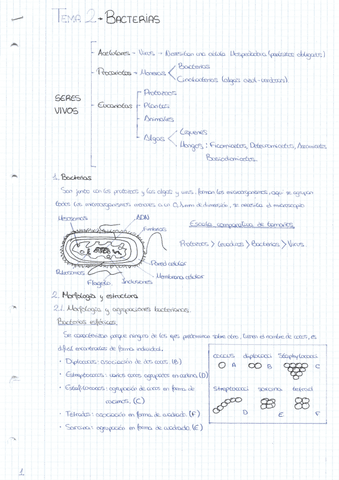 TEMA 2 - BACTERIAS
SERES VIVOS
Acelulares → Virus → Necesitan una célula hospedadora (parásitos obligados)
Procariotas → Moneras
Bacterias
Cianobacterias (algas azul-verdosas)
Eucariotas
Protozoos
Plantas
Animales
Algas
Líquenes
Hongos: Ficomicetos, Deuteromicetos, Ascomicetos
Basidiomicetos
1. Bacterias
Son junto con los protozoos y las algas y virus, forman los microorganismos, aquí se agrupan
todos los microorganismos menores a un 0,1 mm de dimensión, se necesita el microscopio
Mesosomas
ADN
Fimbrias
Escala comparativa de tamaños
Protozoos > Levaduras > Bacterias > Virus
Pared celular
Membrana celular
Ribosomas
Flagelo
Inclusiones
2. Morfología y estructura
2.1. Morfología y agrupaciones bacterianas
Bacterias esféricas:
Se caracterizan porque ninguno de los ejes predomina sobre otro, tienen el nombre de cocos, es
difícil encontrarlas de forma individual.
· Diplococos: asociación de dos cocos (B)
· Estreptococos: varios cocos agrupados en cadena (D)
· Estafilococos: agrupación de cocos en forma de
racimos. (C)
· Tétradas: asociación en forma de cuadrado. (F)
· Sarcina: agrupación en forma de cuadrado. (E)
coccus diplococci Staphylococci
A B C
Streptococci sarcina tetrad
D E F
1